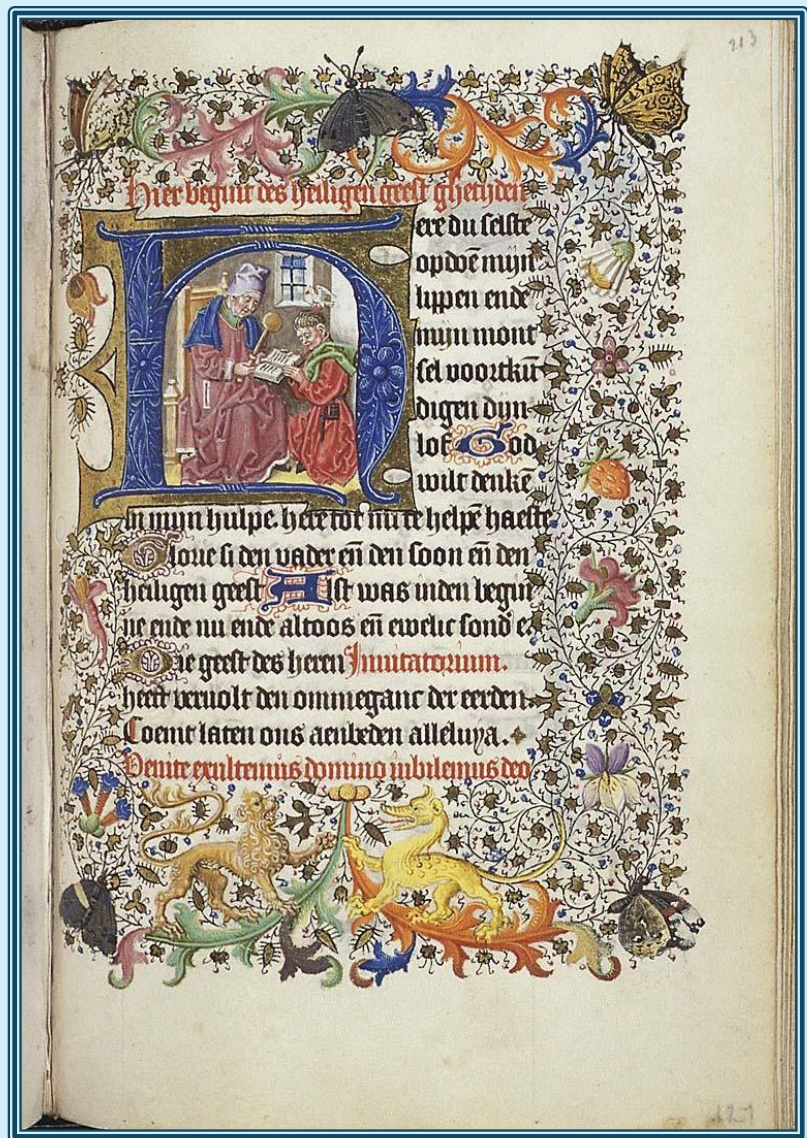 213
Hier begint des heiligen geest ghetijden
Here du selste
opdoē mijn
lippen ende
mijn mont
sel voortkū
digen dijn
lof God
wilt denkē
in mijn hulpe. here tot mi te helpē haeste
Glorie si den vader eñ den soon eñ den
heiligen geest Alst was inden begin
ne ende nu ende altoos eñ ewelic sond e.
Die geest des heren Inuitatorium.
heeft veruolt den ommeganc der eerden.
Coemt laten ons aenbeden alleluya.
Venite exultemus domino iubilemus deo